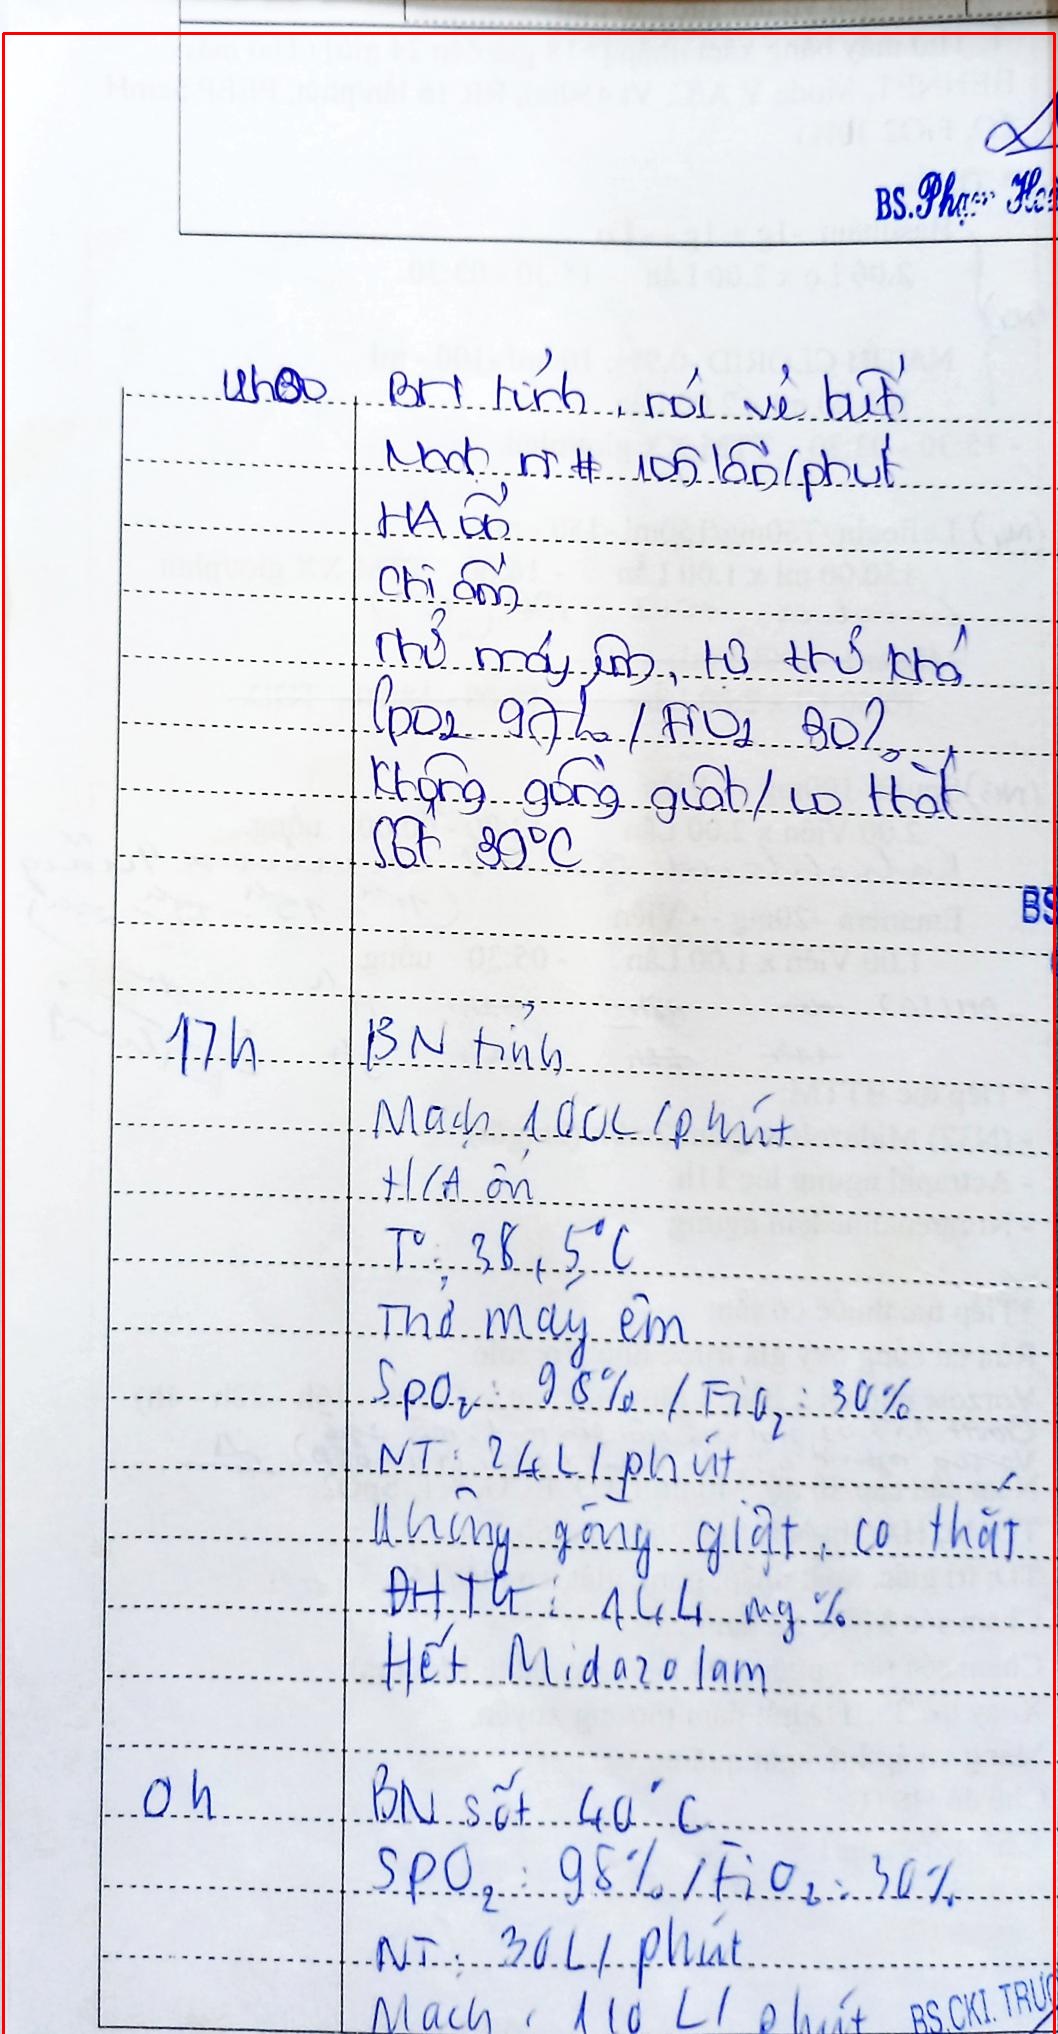 BS. Phạm
BN tỉnh,
Mạch # 105 lần/phút
HA ổn
Chi ấm
Thở máy êm, tự thở khá
SpO2 97% / FiO2 30%
Không gồng giật / co thắt
Sốt 39°C
BS
17h BN tỉnh
Mạch 100L/phút
H/A ổn
T°: 38,5°C
Thở máy êm
SpO2: 98% / FiO2: 30%
NT: 24L/phút
Không gồng giật, co thắt
ĐHTG: 144 mg%
Hết Midazolam
0h BN sốt 40°C
SpO2: 98% / FiO2: 30%
NT: 30L/phút
Mạch: 110 L/phút
BS.CKI. TRƯ